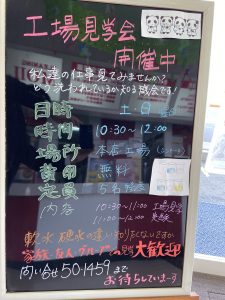 工場見学会
開催中
私達の仕事見てみませんか?
どう洗われているか知る機会です!
日時 土・日
時間 10:30~12:00
場所 本店工場
費用 無料
定員 5名
内容 10:30~11:00 工場見学
11:00~12:00 実験
軟水 硬水の違い知りたくないですか
家族・友人・グループの見学大歓迎
問い合せ 50-1459まで
お待ちしていまーす